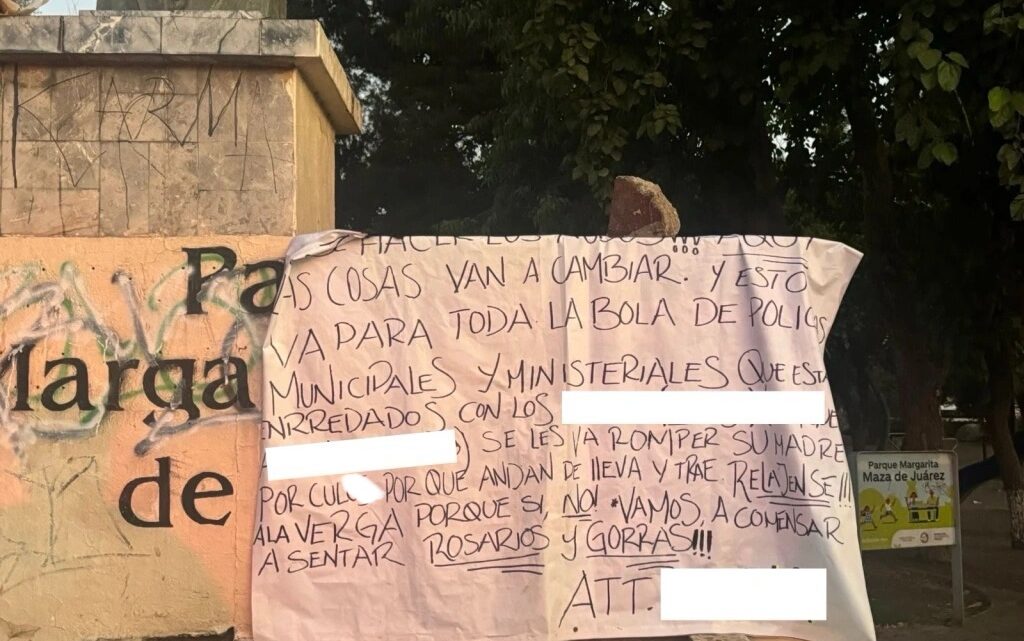 KARMA
Pa
Marga
de
HACER LOS !!! AQUI
AS COSAS VAN A CAMBIAR. Y ESTO
VA PARA TODA LA BOLA DE POLICIAS
MUNICIPALES Y MINISTERIALES QUE ESTA
ENRREDADOS CON LOS
) SE LES VA ROMPER SU MADRE
POR CULOS POR QUE ANDAN DE lleVA Y TRAE. RELAJENSE!!!
ALA VERGA PORQUE SI NO! VAMOS A COMENSAR
A SENTAR ROSARIOS y GORRAS!!!
ATT.
Parque Margarita
Maza de Juárez